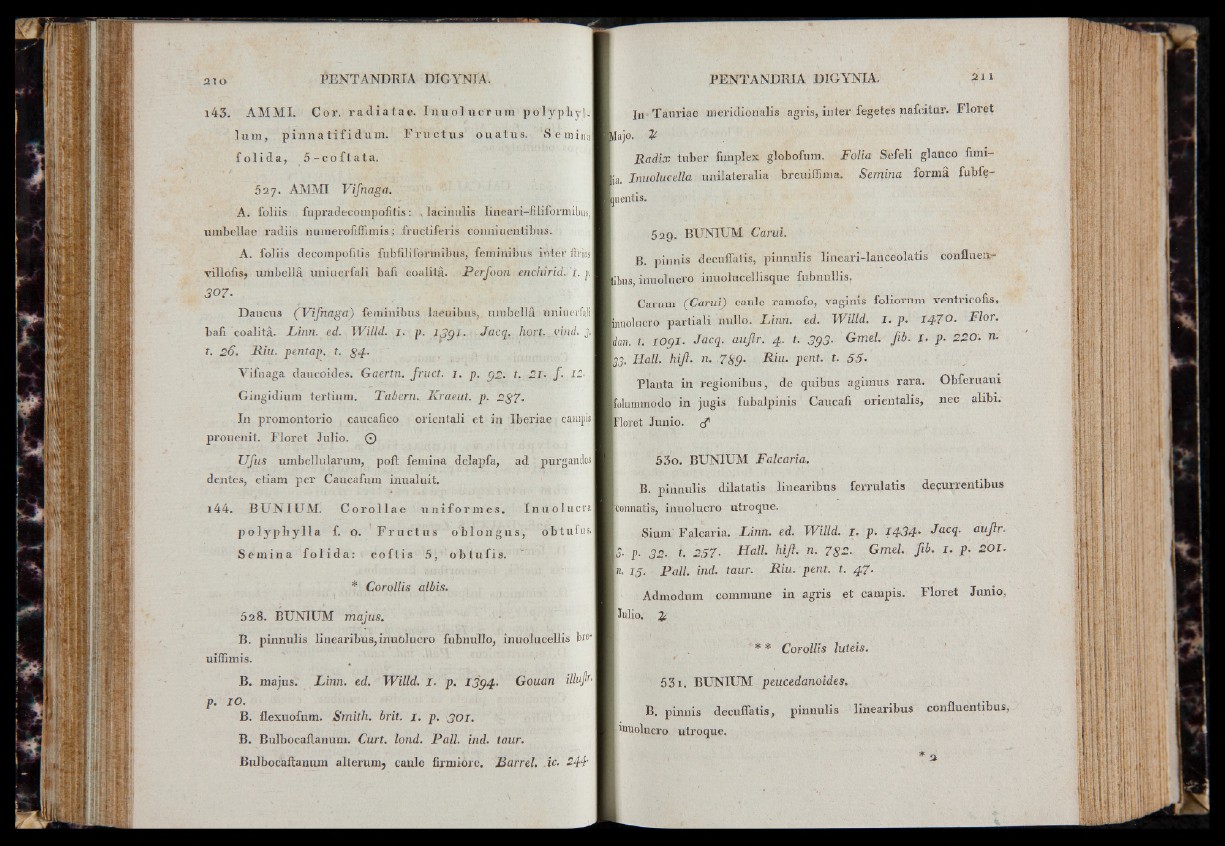 210 PENTANDRIA DIGYNIA.
143. AMMI. Cor. radiatae. Inuolucrum polyphyl-
lum, pinnatifidum. Fructus ouatus. Semina
ſolida, 5-coſtata.
527. AMMI Viſnaga.
A. foliis ſupradecompoſitis: lacinulis lineari-filiformibus,
umbellae radiis numeroſiſſimis: fructiferis conniuentibus.
A. foliis decompoſitis ſubfiliformibus, ſeminibus inter ſtrias
villoſis, umbellâ uniuerſali baſi coalitâ. Perſoon enchirid. 1. p.
307.
Daucus (Viſnaga) ſeminibus laeuibus, umbellâ uniuerſali
baſi coalitâ. Linn. ed. Willd. 1. p. 1391. Jacq. hort. vind. 3.
t. 26. Riu. pentap. t. 84.
Viſnaga daucoides. Gaertn. fruct. 1. p. 92. t. 21. f. 12.
Gingidium tertium. Tabern. Kraeut. p. 287.
In promontorio caucaſico orientali et in Iberiae campis
prouenit. Floret Julio. ⊙
Uſus umbellularum, poſt ſemina delapſa, ad purgandos
dentes, etiam per Caucaſum inualuit.
144. BUNIUM. Corollae uniformes. Inuolucra
polyphylla ſ. o. Fructus oblongus, obtuſus.
Semina ſolida: coſtis 5, obtuſis.
* Corollis albis.
528. BUNIUM majus.
B. pinnulis linearibus, inuolucro ſubnullo, inuolucellis bre-
uiſſimis.
B. majus. Linn. ed. Willd. 1. p. 1394. Gouan illuſtr.
p. 10.
B. flexuoſum. Smith. brit. 1. p. 301.
B. Bulbocaſtanum. Curt. lond. Pall. ind. taur.
Bulbocaſtanum alterum, caule firmiore. Barrel. ic. 244.
PENTANDRIA DIGYNIA. 211
In Tauriae meridionalis agris, inter ſegetes naſcitur. Floret
Majo. ♃
Radix tuber ſimplex globoſum. Folia Seſeli glauco ſimi-
lia. Inuolucella unilateralia breuiſſima. Semina formâ ſubſe-
quentis.
529. BUNIUM Carui.
B. pinnis decuſſatis, pinnulis lineari-lanceolatis confluen-
tibus, inuolucro inuolucellisque ſubnullis.
Carum (Carui) caule ramoſo, vaginis foliorum ventricoſis,
inuolucro partiali nullo. Linn. ed. Willd. 1. p. 1470. Flor.
dan. t. 1091. Jacq. auſtr. 4. t. 393. Gmel. ſib. 1. p. 220. n.
33. Hall. hiſt. n. 789. Riu. pent. t. 55.
Planta in regionibus, de quibus agimus rara. Obſeruaui
ſolummodo in jugis ſubalpinis Caucaſi orientalis, nec alibi.
Floret Junio. ♂
530. BUNIUM Falcaria.
B. pinnulis dilatatis linearibus ſerrulatis decurrentibus
connatis, inuolucro utroque.
Sium Falcaria. Linn. ed. Willd. 1. p. 1434. Jacq. auſtr.
3. p. 32. t. 257. Hall. hiſt. n. 782. Gmel. ſib. 1. p. 201.
n. 15. Pall. ind. taur. Riu. pent. t. 47.
Admodum commune in agris et campis. Floret Junio,
Julio. ♃
** Corollis luteis.
531. BUNIUM peucedanoides.
B. pinnis decuſſatis, pinnulis linearibus confluentibus,
inuolucro utroque.
* 2